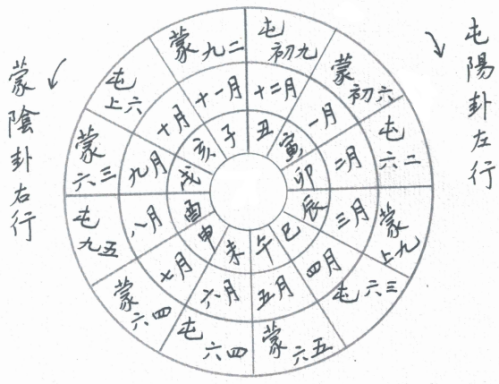 屯陽卦左行
蒙陰卦右行
屯初九
蒙初六
屯六二
蒙上九
屯六三
蒙六五
屯六四
蒙六四
屯九五
蒙六三
屯上六
蒙九二
十二月
一月
二月
三月
四月
五月
六月
七月
八月
九月
十月
十一月
丑
寅
卯
辰
巳
午
未
申
酉
戌
亥
子